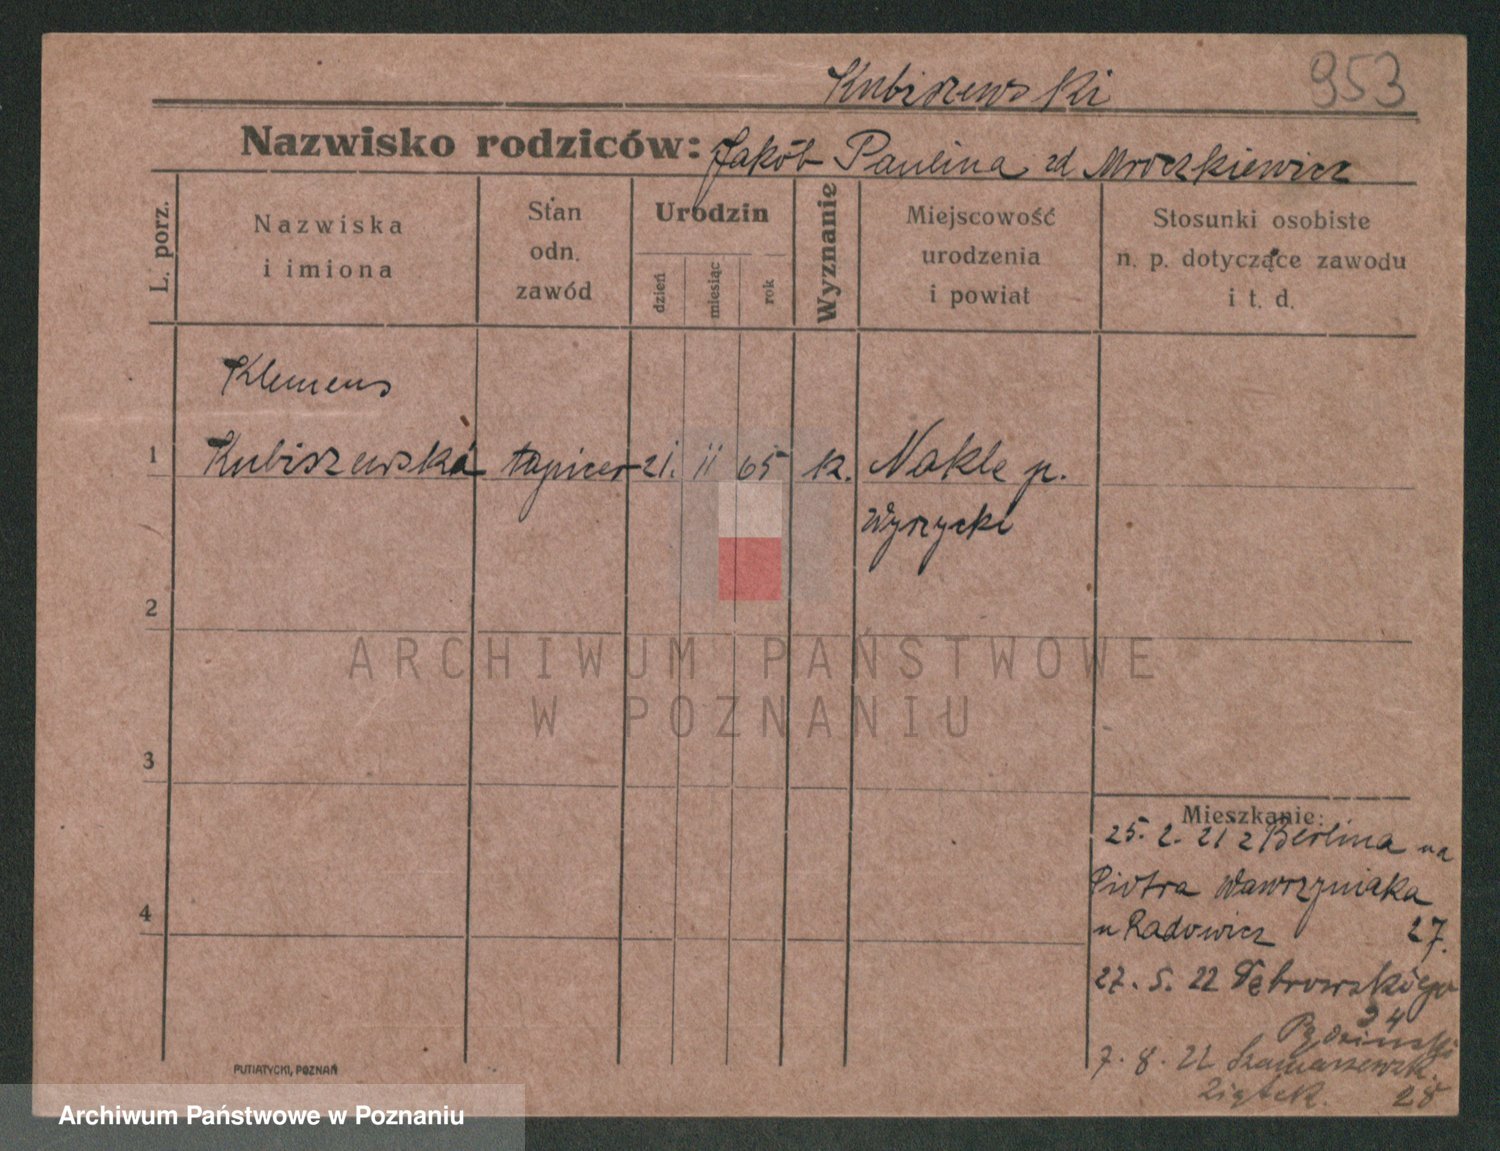 953
Kubiszewski
Nazwisko rodziców: Jakób Paulina zd Mroczkiewicz
L. porz.
Nazwiska
i imiona
Stan
odn.
zawód
Urodzin
dzień
miesiąc
rok
Wyznanie
Miejscowość
urodzenia
i powiat
Stosunki osobiste
n. p. dotyczące zawodu
i t. d.
Klemens
1 Kubiszewski tapicer 21. II 65 k. Nakle p.
Wyrzycki
2
ARCHIWUM PAŃSTWOWE
W POZNANIU
3
Mieszkanie:
25. 2. 21 z Berlina na
Piotra Wawrzyniaka
u Radowicz 27.
4
27. 5. 22 Dąbrowskiego
34
7. 8. 22 Szamarzewsk.
Ziętek. 28
PUTIATYCKI, POZNAŃ
Archiwum Państwowe w Poznaniu